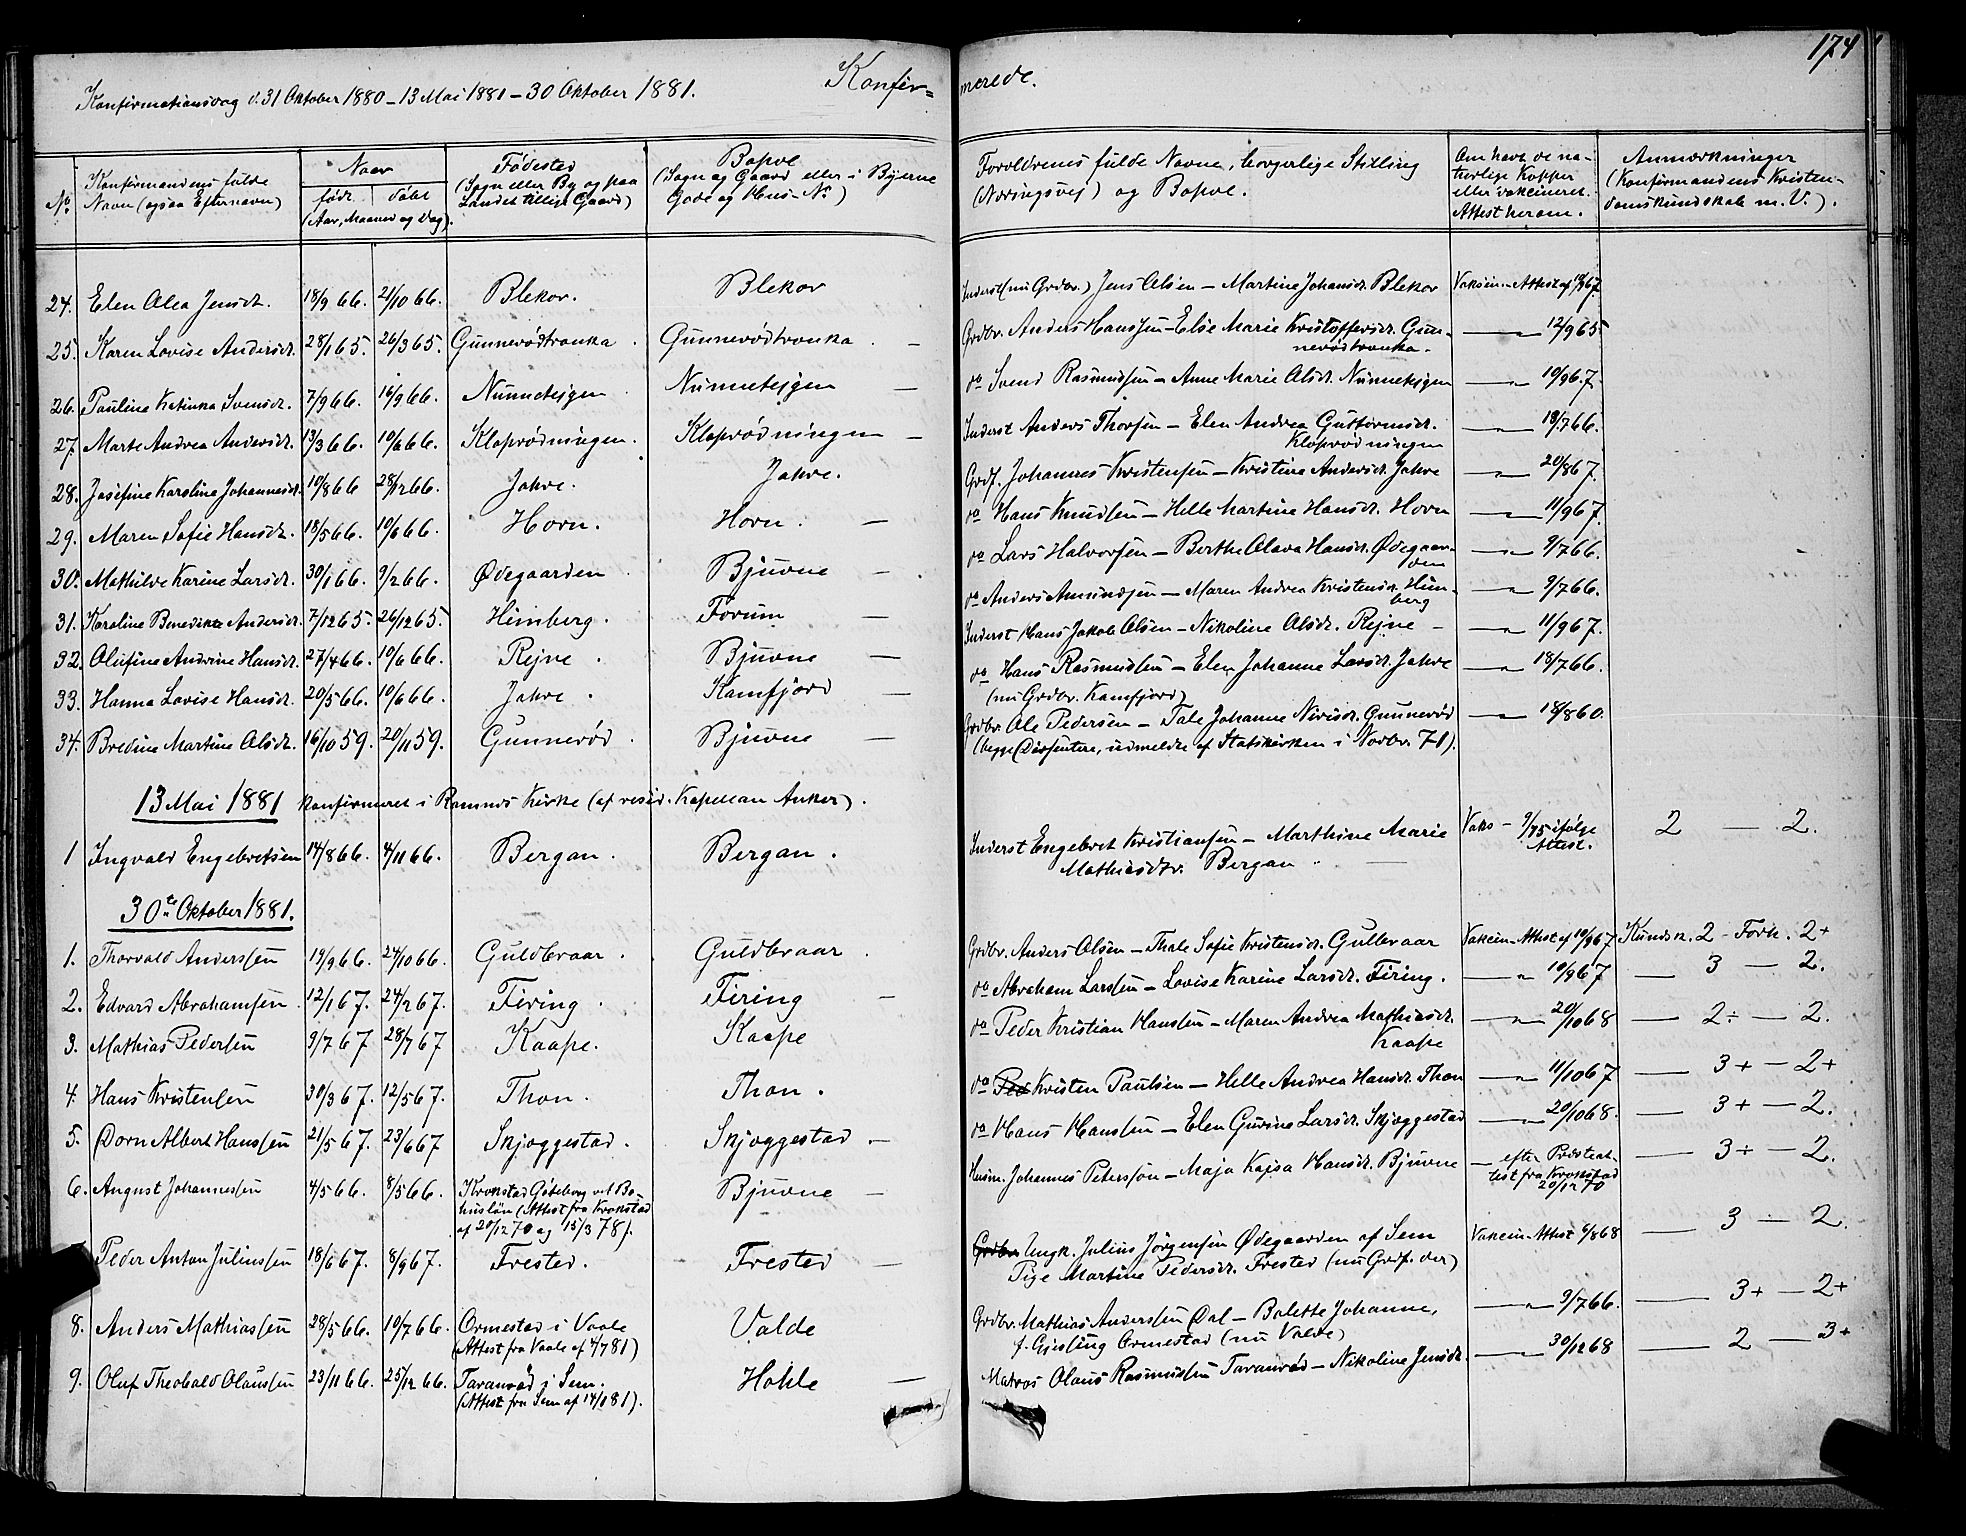 174
Konfirmationsdag d. 31 Oktober 1880 – 13 Mai 1881 – 30 Oktober 1881. Konfir= merede.
No. Konfirmandens fulde Navn (ogsaa Efternavn) Naar født døbt (Aar, Maaned og Dag). Fødested (Sogn eller By og paa Landet tillige Gaard) Bopæl (Sogn og Gaard eller i Byerne Gade og Hus-No.) Forældrenes fulde Navne, borgerlige Stilling (Næringsvej) og Bopæl. Om havt de naturlige Kopper eller vakcineret. Attest herom. Anmærkninger (Konfirmandens Kristendomskundskab m. V.).
24. Elen Olea Jensdt. 18/9 66. 21/10 66. Blekor. Blekor Inderst (nu Grdbr.) Jens Olsen – Martine Johansdt. Blekor Vaksin.-Attest af 18/9 67.
25. Karen Lovise Andersdt. 28/1 65. 26/3 65. Gunnerødtranka. Gunnerødtranka. – Grdbr. Anders Hanssen – Else Marie Kristoffersdt. Gun-
nerødtranka. –„– 12/9 65
26. Pauline Katinka Svensdt. 7/9 66. 16/9 66. Nunnetejgen Nunnetejgen – do Svend Rasmussen – Anne Marie Olsdt. Nunnetejgen –„– 10/9 67.
27. Marte Andrea Andersdt. 13/3 66. 10/6 66. Kloprødningen. Kloprødningen – Inderst Anders Thorsen – Elen Andrea Guttormsdt.
Kloprødningen –„– 18/7 66.
28. Josefine Karoline Johannesdt. 10/8 66 28/12 66. Jahre. Jahre. Grdf. Johannes Kristensen – Kristine Andersdt. Jahre –„– 20/8 67.
29. Maren Sofie Hansdt. 18/5 66. 10/6 66. Horn. Horn. – do Hans Knudsen – Helle Martine Hansdt. Horn –„– 11/9 67.
30. Mathilde Karine Larsdt. 30/1 66. 9/2 66. Ødegaarden Bjuvne – do Lars Halvorsen – Berthe Olava Hansdt. Ødegaar-
den –„– 9/7 66.
31. Karoline Benedikte Andersdt. 7/12 65. 26/12 65. Heimberg. Forum – do Anders Amundsen – Maren Andrea Kristensdt. Heim-
berg –„– 9/7 66.
32. Olufine Andrine Hansdt. 27/4 66. 10/6 66. Rejne. Bjuvne – Inderst Hans Jakob Olsen – Nikoline Olsdt. Rejne – –„– 11/9 67.
33. Hanna Lovise Hansdt. 20/5 66. 10/6 66. Jahre. Kamfjord – do Hans Rasmussen – Elen Johanne Larsdt. Jahre
(nu Grdbr. Kamfjord) –„– 18/7 66.
34. Bredine Martine Olsdt. 16/10 59. 20/11 59. Gunnerød. Bjuvne – Grdbr. Ole Pedersen – Tale Johanne Nirisdt. Gunnerød
(begge Dissentere, udmeldte af Statskirken i Novbr. 71). –„– 18/8 60.
13 Mai 1881 konfirmeret i Ramnes Kirke (af resid. Kapellan Anker).
1 Ingvald Engebretsen 14/8 66. 4/11 66. Bergan. Bergan. Inderst Engebret Kristiansen – Marthine Marie
Mathiasdtr. Bergan Vaks – 9/75 ifølge
Attest. 2 – 2.
30te Oktober 1881.
1. Thorvald Anderssen 19/9 66. 24/10 66. Guldbraar. Guldbraar. Grdbr. Anders Olsen – Thale Sofie Kristensdt. Gullbraar Vakcin.-Attest af 10/9 67 Kundsk. 2 - Forh. 2+
2. Edvard Abrahamsen 12/1 67. 24/2 67. Firing. Firing – do Abraham Larssen – Lovise Karine Larsdt. Firing. –„– 10/9 67 – 3 – 2.
3. Mathias Pedersen 9/7 67 28/7 67 Kaape. Kaape do Peder Kristian Hansen – Maren Andrea Mathiasdt.
Kaape –„– 20/10 68 – 2÷ – 2.
4. Hans Kristensen 30/3 67. 12/5 67. Thon. Thon. do Kristen Paulsen – Helle Andrea Hansdt. Thon –„– 11/10 67 – 3+ – 2+
5. Dorn Albert Hanssen 21/5 67. 23/6 67 Skjæggestad. Skjæggestad. – do Hans Hanssen – Elen Gurine Larsdt. Skjæggestad –„– 20/10 68. – 3+ – 2.
6. August Johannessen 4/5 66. 8/5 66. Krokstad Göteborg vet Bo-
huslän (Attest fra Krokstad
af 20/12 70 og 15/3 78). Bjuvne – Husm. Johannes Petersson – Maja Kajsa Hansdt. Bjuvne – efter Præsteat-
test fra Krokstad
20/12 70 – 3÷ – 2.
Peder Anton Julinssen 18/6 67. 8/9 67. Frested. Frested – Ungk. Julius Jørgensen Ødegaarden af Sem
Pige Martine Pedersdt. Frested (nu Grdf. der) Vakcin-Attest 6/8 68 – 3 – 2.
8. Anders Mathiassen 28/5 66. 10/7 66. Ormestad i Vaale
(Attest fra Vaale af 4/7 81) Valde Grdbr. Mathias Anderssen Dal – Bolette Johanne,
f. Gjesling Ormestad (nu Valde) –„– 9/7 66. – 3+ – 2+
9. Oluf Theobald Olaussen 23/11 66. 25/12 66. Taranrød i Sem.
(Attest fra Sem af 14/1 81). Hohle – Matros Olaus Rasmussen Taranrød – Nikoline Jensdt. –„– 30/12 68 – 2 – 3+